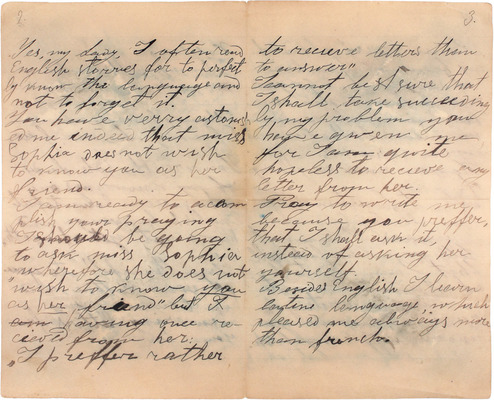 2.
Yes, my dear, I often read
English storries for to perfect
ly know the language and
not to forget it.
You have verry astonish
ed me indeed that miss
Sophia does not wish
to know you as her
friend.
I am ready to acom
plish your praying
I should be going
to ask miss Sophia
"wherefore she does not
wish to know you
as her friend" but I
am having once re
ceived from her:
"I preffer rather
3.
to recieve letters than
to answer"
I cannot be sure that
I shall take succeeding
ly my problem you
have given me
for I am quite
hopeless to recieve any
letter from her.
Pray to write me
because you preffer,
that I shall ask it
instead of asking her
yourself.
Besides English I learn
laytine language which
pleased me always more
than french.